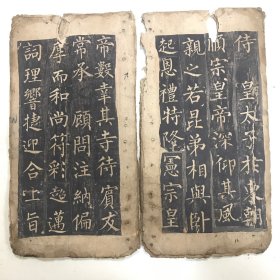 侍皇太子於東朝
順宗皇帝深仰其風
親之若昆弟相與卧
起恩禮特隆憲宗皇
帝數幸其寺待賓友
常承顧問注納偏
厚而和尚符彩超邁
詞理響捷迎合上旨